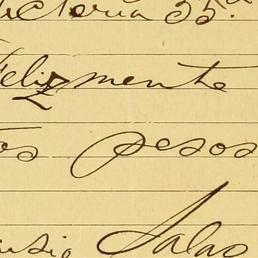 ictoria 35.a
Felizmente
os pesos
usio Salas